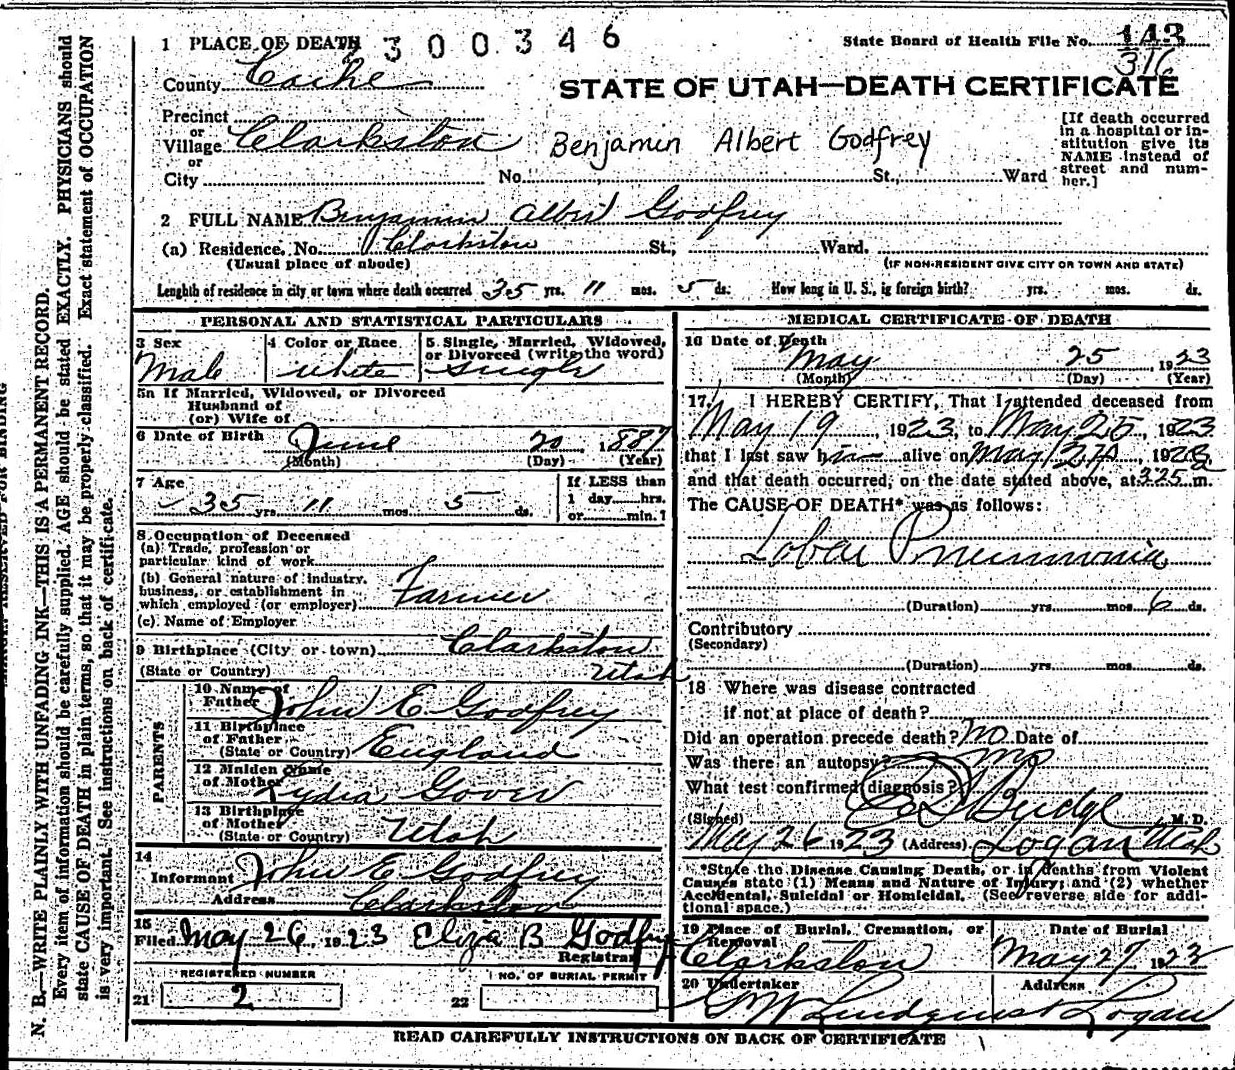 N. B.—WRITE PLAINLY WITH UNFADING INK—THIS IS A PERMANENT RECORD.
Every item of information should be carefully supplied. AGE should be stated EXACTLY. PHYSICIANS should
state CAUSE OF DEATH in plain terms, so that it may be properly classified. Exact statement of OCCUPATION
is very important. See instructions on back of certificate.
1 PLACE OF DEATH
2300346
State Board of Health File No. 143
316
County Cache
STATE OF UTAH—DEATH CERTIFICATE
Precinct
or
Village Clarkston
Benjamin Albert Godfrey
or
City No. St., Ward
[If death occurred
in a hospital or in-
stitution give its
NAME instead of
street and num-
ber.]
2 FULL NAME Benjamin Albert Godfrey
(a) Residence. No. Clarkston St., Ward.
(Usual place of abode) (IF NON-RESIDENT GIVE CITY OR TOWN AND STATE)
Lenghth of residence in city or town where death occurred 35 yrs. 11 mos. 5 ds. How long in U. S., is foreign birth? yrs. mos. ds.
PERSONAL AND STATISTICAL PARTICULARS
3 Sex
Male
4 Color or Race
white
5 Single, Married, Widowed,
or Divorced (write the word)
single
5a If Married, Widowed, or Divorced
Husband of
(or) Wife of
6 Date of Birth June 20, 1887
(Month) (Day) (Year)
7 Age
35 yrs. 11 mos. 5 ds.
If LESS than
1 day hrs.
or min.?
8 Occupation of Deceased
(a) Trade, profession or
particular kind of work
(b) General nature of industry,
business, or establishment in
which employed (or employer) Farmer
(c) Name of Employer
9 Birthplace (City or town) Clarkston
(State or Country) Utah
PARENTS
10 Name of
Father John E Godfrey
11 Birthplace
of Father
(State or Country) England
12 Maiden Name
of Mother Lydia Gover
13 Birthplace
of Mother
(State or Country) Utah
14
Informant John E Godfrey
Address Clarkston
15
Filed May 26, 1923 Eliza B Godfrey
Registrar
REGISTERED NUMBER
NO. OF BURIAL PERMIT
21 2
22
MEDICAL CERTIFICATE OF DEATH
16 Date of Death
May 25, 1923
(Month) (Day) (Year)
17 I HEREBY CERTIFY, That I attended deceased from
May 19, 1923, to May 25, 1923
that I last saw him alive on May, 1923
and that death occurred, on the date stated above, at 3.25 m.
The CAUSE OF DEATH* was as follows:
Lobar Pneumonia
(Duration) yrs. mos. 6 ds.
Contributory
(Secondary)
(Duration) yrs. mos. ds.
18 Where was disease contracted
if not at place of death?
Did an operation precede death? No Date of
Was there an autopsy? no
What test confirmed diagnosis?
(Signed) Budge M. D.
May 26 1923 (Address) Logan Utah
*State the Disease Causing Death, or in deaths from Violent
Causes state (1) Means and Nature of Injury; and (2) whether
Accidental, Suicidal or Homicidal. (See reverse side for addi-
tional space.)
19 Place of Burial, Cremation, or
Removal
Clarkston
Date of Burial
May 27 1923
20 Undertaker
Address
Lundquist Logan
READ CAREFULLY INSTRUCTIONS ON BACK OF CERTIFICATE